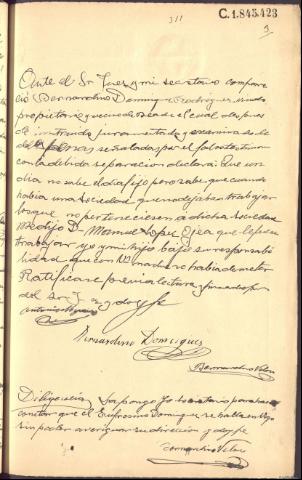 C.1.845.423
311
3.
Ante el Sr Juez y mi secretario compare
ció Bernardino Dominguez Rodriguez, viudo
propietario y vecino de el cual despues
de instruido juramentado y examinado de
de las señaladas por el falso testimonio
con la debida separacion declara: Que un
dia no sabe el dia fijo pero sabe que cuando
habia una Sociedad que no dejaban trabajar
los que no perteneciesen a dicha Sociedad
me dijo D. Manuel Lopez que
trabajar yo y mi hijo bajo su responsabi
lidad que con nadie se habia de meter
Ratifica se previa lectura y firma despues
del Sr Juez y doy fe
Bernardino Domigues
Bernardino Veloso
Diligencia Lo pongo yo secretario para hacer
constar que el Eufrosino Dominguez se halla en Vigo
sin poder averiguar su direccion y doy fe